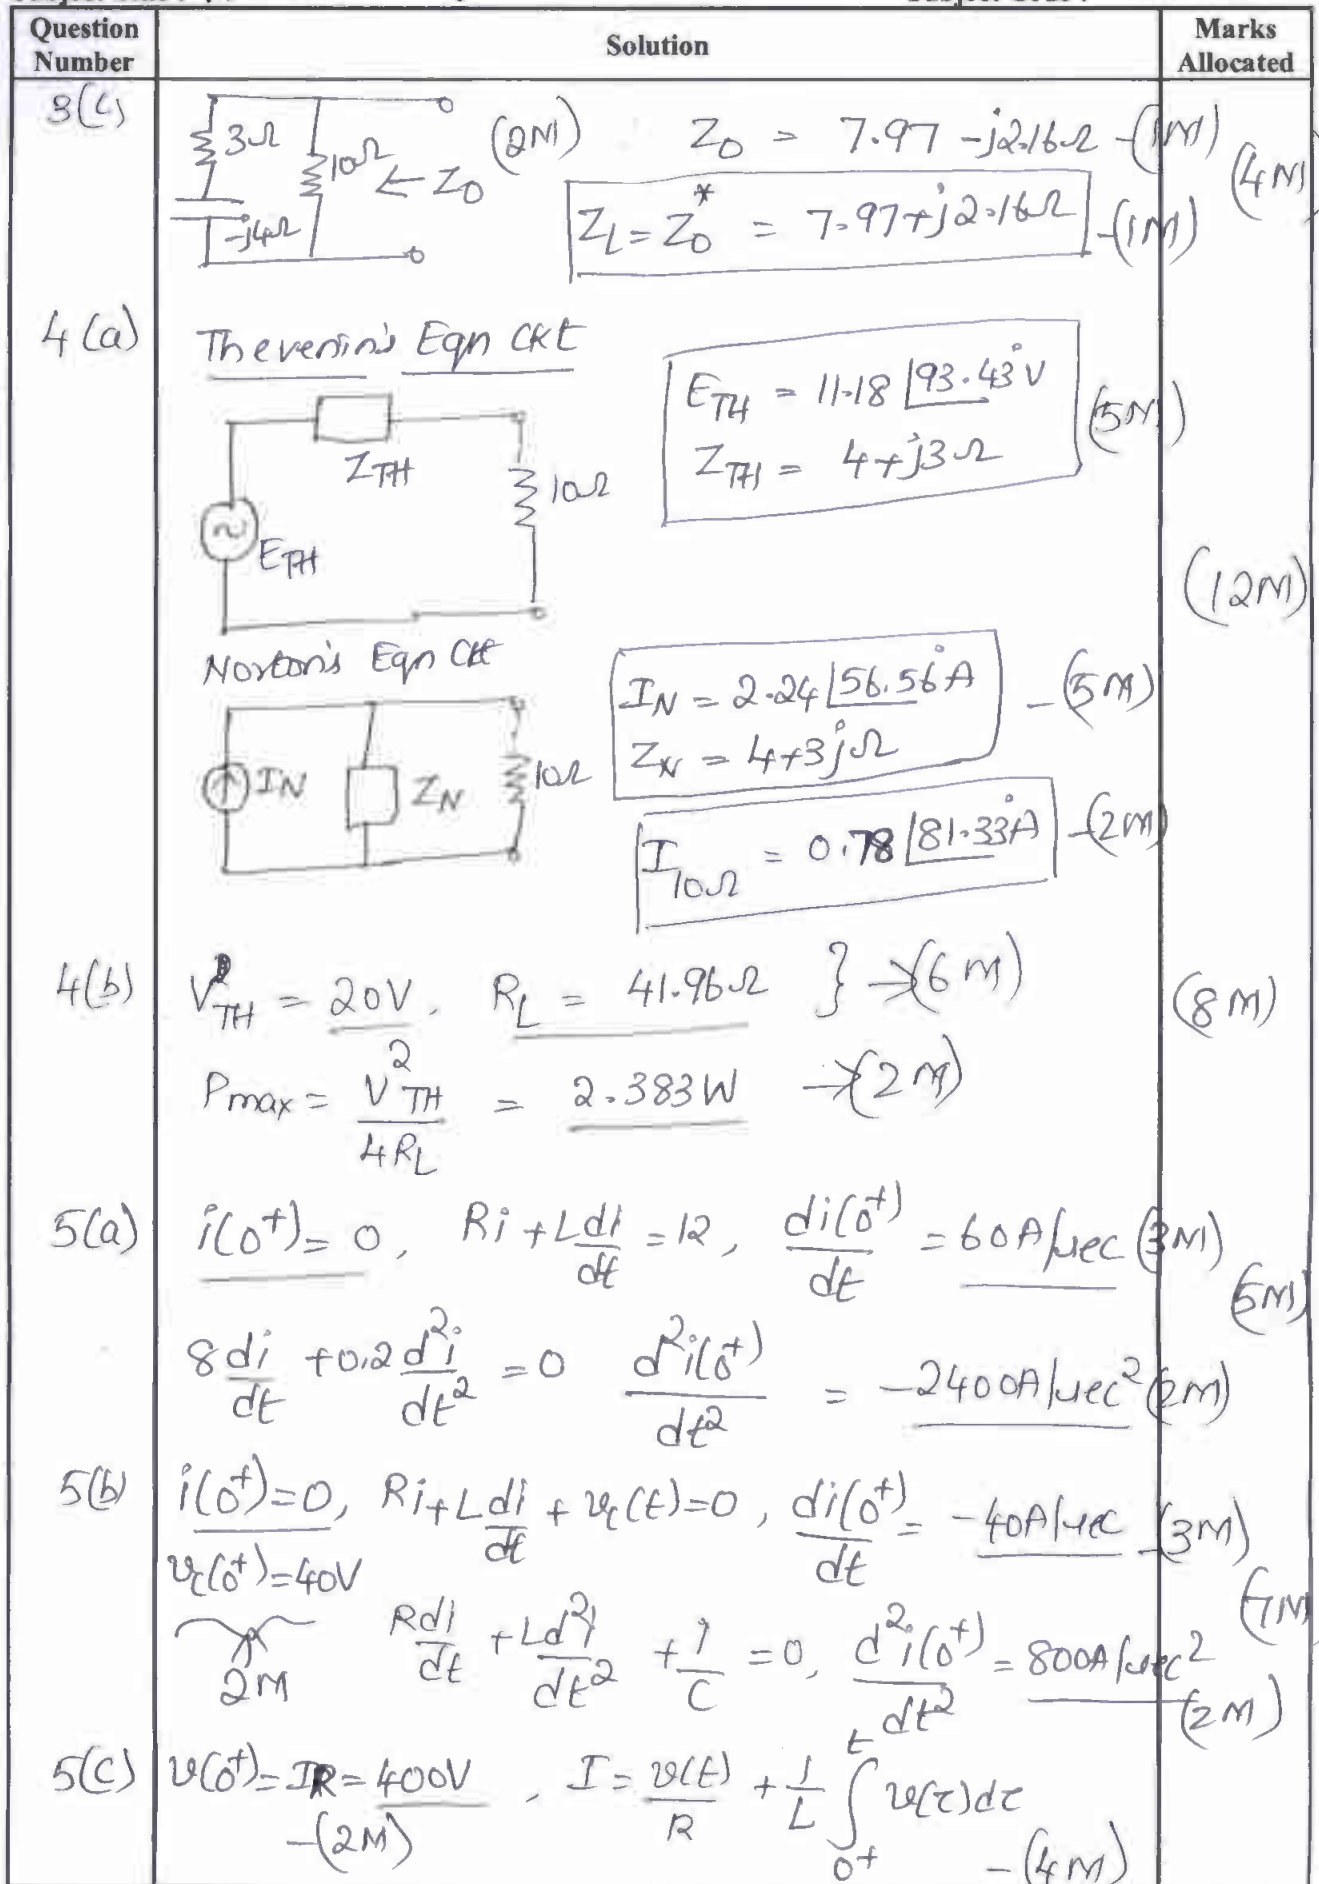 Question Number
Solution
Marks Allocated
3(c)
3Ω
10Ω
-j4Ω
← Z0
(2M)
Z0 = 7.97 - j2.16Ω -(1M)
ZL = Z0* = 7.97 + j2.16Ω -(1M)
(4M)
4(a)
Thevenin's Eqn Ckt
ZTH
10Ω
ETH
ETH = 11.18 ∠93.43° V
ZTH = 4+j3Ω
(5M)
(12M)
Norton's Eqn Ckt
IN
ZN
10Ω
IN = 2.24 ∠56.56° A
ZN = 4+3jΩ
-(5M)
I10Ω = 0.78 ∠81.33° A -(2M)
4(b)
VTH = 20V, RL = 41.96Ω } →(6M)
(8M)
Pmax = V²TH / 4RL = 2.383W →(2M)
5(a)
i(0+) = 0, Ri + L di/dt = 12, di(0+)/dt = 60A/sec (3M)
(5M)
8 di/dt + 0.2 d²i/dt² = 0 d²i(0+)/dt² = -2400A/sec² (2M)
5(b)
i(0+)=0, Ri + L di/dt + vc(t)=0, di(0+)/dt = -40A/sec (3M)
vc(0+)=40V
2M
R di/dt + L d²i/dt² + i/C = 0, d²i(0+)/dt² = 800A/sec²
(2M)
(7M)
5(c)
v(0+) = IR = 400V, I = v(t)/R + 1/L ∫0+ t v(τ)dτ
-(2M)
-(4M)